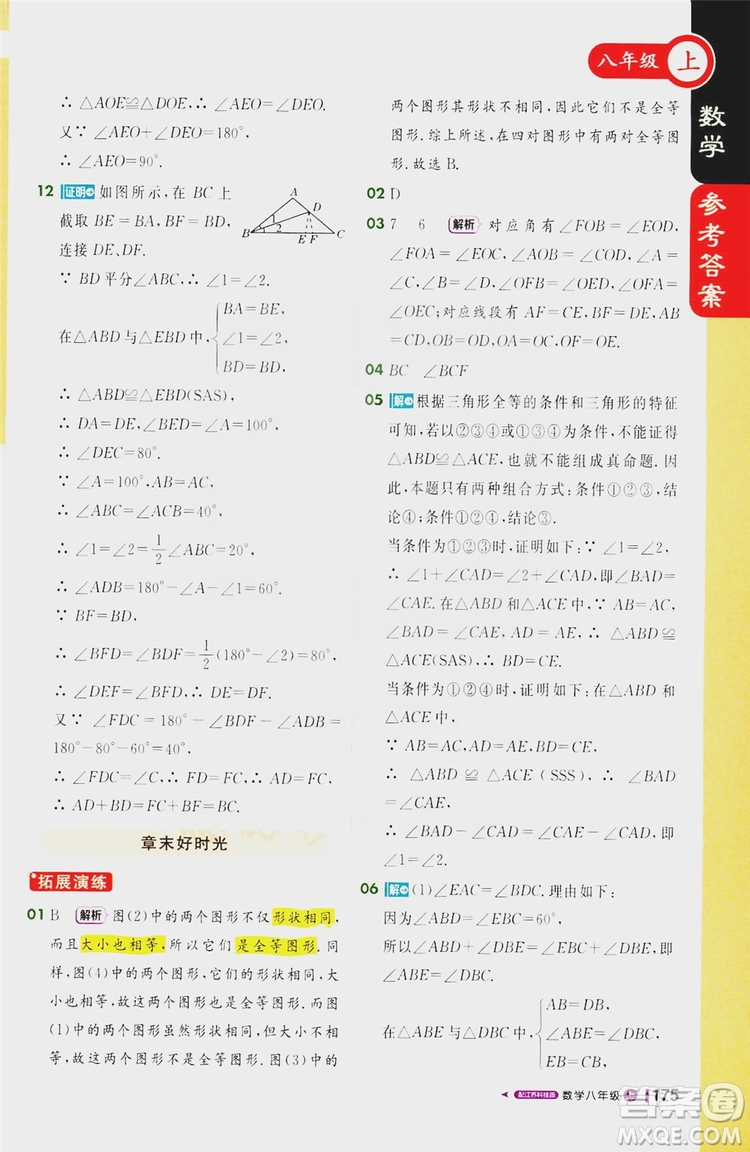 八年级 上
数学
参考答案
∴ △AOE≌△DOE,∴ ∠AEO=∠DEO.
又∵ ∠AEO+∠DEO=180°,
∴ ∠AEO=90°.
12 证明 如图所示,在 BC 上
截取 BE=BA,BF=BD,
连接 DE,DF.
A
D
1
2
B
E F
C
∵ BD 平分∠ABC,∴ ∠1=∠2.
在△ABD 与△EBD 中,{BA=BE,
∠1=∠2,
BD=BD,
∴ △ABD≌△EBD(SAS),
∴ DA=DE,∠BED=∠A=100°,
∴ ∠DEC=80°.
∵ AB=AC,∠A=100°,
∴ ∠ABC=∠ACB=40°,
∴ ∠1=∠2=1/2∠ABC=20°,
∴ ∠ADB=180°-∠A-∠1=60°.
∵ BF=BD,
∴ ∠BFD=∠BDF=1/2(180°-∠2)=80°,
∴ ∠DEF=∠BFD,∴ DE=DF.
又∵ ∠FDC=180°-∠BDF-∠ADB=
180°-80°-60°=40°,
∴ ∠FDC=∠C,∴ DF=FC,
∴ AD+BD=FC+BF=BC.
章末好时光
拓展演练
01 B 解析 图(2)中的两个图形不仅形状相同,
而且大小也相等,所以它们是全等图形.同
样,图(4)中的两个图形,它们的形状相同,大
小也相等,故这两个图形也是全等图形.而图
(1)中的两个图形虽然形状相同,但大小不相
等,故这两个图形不是全等图形.图(3)中的
两个图形其形状不相同,因此它们不是全等
图形.综上所述,在四对图形中有两对全等图
形.故选 B.
02 D
03 7 6 解析 对应角有∠FOB=∠EOD,
∠FOA=∠EOC,∠BOA=∠DOC,∠B=
∠D,∠A=∠C,∠OFB=∠OED,∠OFA=
∠OEC;对应线段有 AF=CE,BF=DE,AB
=CD,OB=OD,OA=OC,OF=OE.
04 BC ∠BCF
05 解 根据三角形全等的条件和三角形的特征
可知,若以②③④或①③④为条件,不能证得
△ABD≌△ACE,也就不能组成真命题.因
此,本题只有两种组合方式:条件①②③,结
论④;条件①②④,结论③.
当条件为①②③时,证明如下:∵ ∠1=∠2,
∴ ∠1+∠CAD=∠2+∠CAD,即∠BAD=
∠CAE.在△ABD 和△ACE 中,∵ AB=
AC,∠BAD=∠CAE,AD=AE,∴ △ABD≌
△ACE(SAS),∴ BD=CE.
当条件为①②④时,证明如下:在△ABD 和
△ACE 中,
∵ AB=AC,AD=AE,BD=CE,
∴ △ABD≌△ACE(SSS),∴ ∠BAD=
∠CAE,
∴ ∠BAD-∠CAD=∠CAE-∠CAD,即∠1
=∠2.
06 解 (1)∠EAC=∠BDC.理由如下:
因为∠ABD=∠CBE=60°,
所以∠ABD+∠DBE=∠CBE+∠DBE,即
∠ABE=∠DBC.
在△ABE 与△DBC 中,{AB=DB,
∠ABE=∠DBC,
EB=CB,
配江苏科技版 数学八年级 上 175
答案圈
MXQE.COM